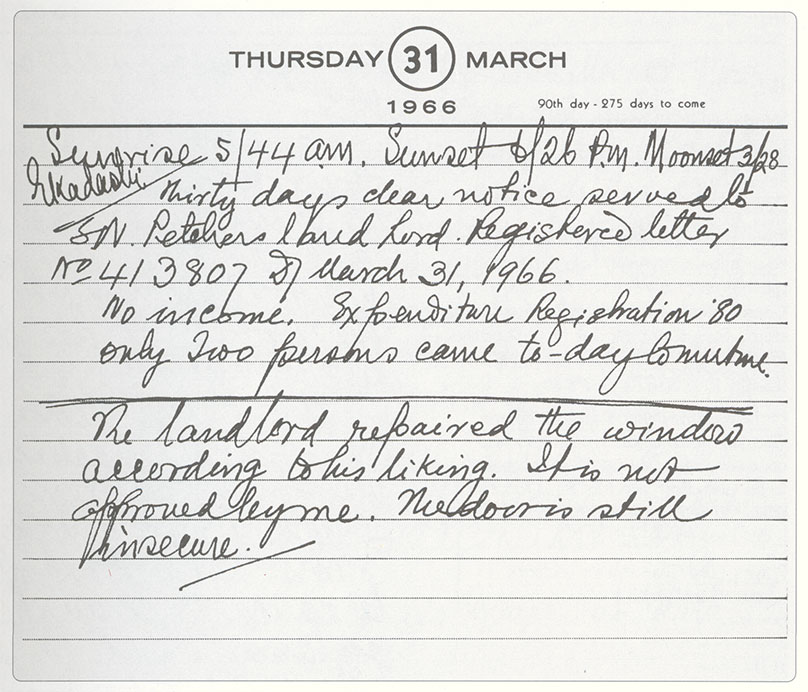 THURSDAY 31 MARCH
1966 90th day - 275 days to come
Sunrise 5/44 a.m. Sunset 6/26 P.m. Moonset 3/28
Ekadashi. Thirty days clear notice served to
S.N. Petchers Land Lord. Registered letter
No 413807 of March 31, 1966.
No income. Expenditure Registration '80
only Two persons came to-day to
The landlord repaired the window
according to his liking. It is not
approved by me. The door is still
insecure.